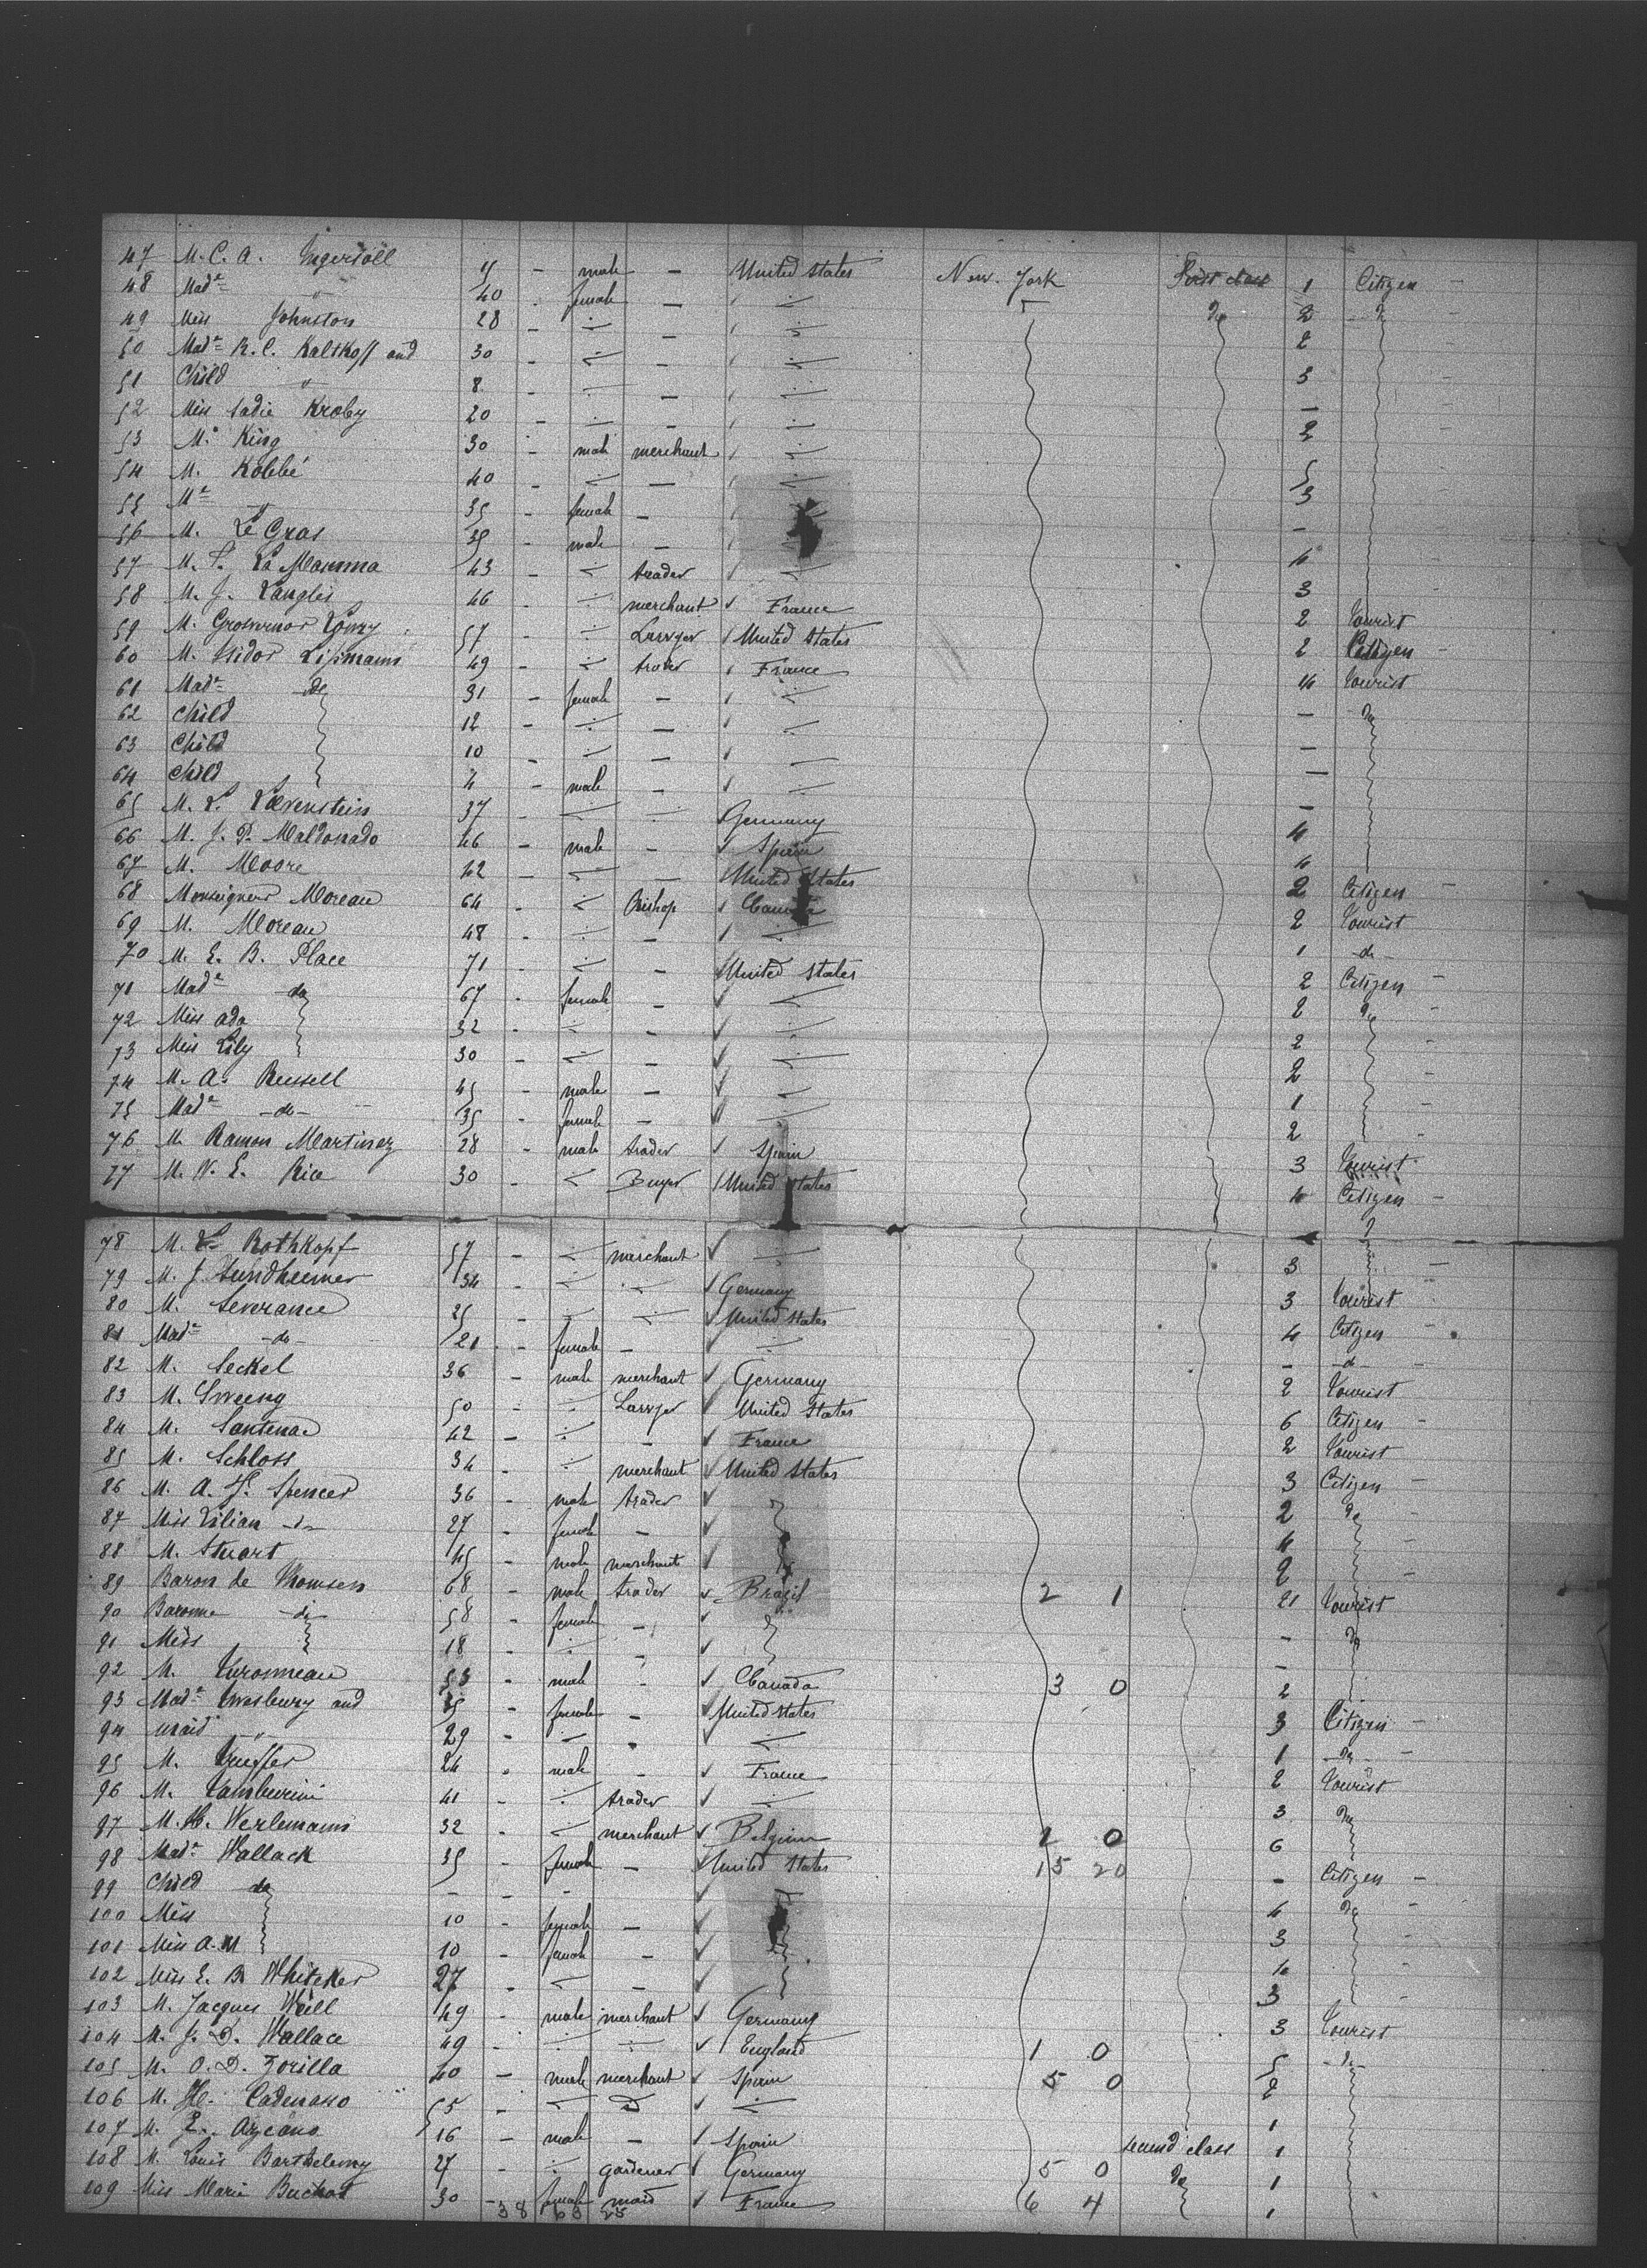 47 M. C. A. Ingersoll - male - United States New. York First class 1 Citizen -
48 Made " 40 - female - " do 2 do
49 Miss Johnston 28 - 2
50 Made R. C. Kaltkoff and 30 - 3
51 Child " 8 - -
52 Miss Sadie Kroby 20 - 2
53 M. King 30 - male merchant 5
54 M. Kobbé 40 - - 3
55 Me " 35 - female - -
56 M. Le Gras 39 - male - 4
57 M. S. La Manna 43 - trader 3
58 M. J. Langlis 46 - merchant France 2 tourist
59 M. Grosvenor Lowry 57 - Lawyer United States 2 Citizen -
60 M. Isidor Lipmann 49 - trader France 4 tourist
61 Made do 31 - female - - do
62 Child 12 - - -
63 Child 10 - - -
64 Child 4 - male - -
65 M. L. Lövenstein 37 - Germany 4
66 M. J. P. Maldonado 46 - male - Spain 4
67 M. Moore 42 - - United States 2 Citizen -
68 Monseigneur Moreau 64 - Bishop Canada 2 tourist
69 M. Moreau 48 - - 1 - do -
70 M. E. B. Place 71 - - United States 2 Citizen -
71 Made do 67 - female - 2 do
72 Miss Ada 32 - - 2
73 Miss Lily 30 - - 2
74 M. A. Russell 45 - male - 1
75 Made - do - 35 - female - 2
76 M. Ramon Martinez 28 - male trader Spain 3 tourist
77 M. W. E. Rice 30 - Buyer United States 4 Citizen -
78 M. L. Rothkopf 57 - merchant 3 -
79 M. J. Sundheimer 34 - Germany 3 tourist
80 M. Severance 25 - United States 4 Citizen -
81 Made - do - 21 - female - - - do -
82 M. Seckel 36 - male merchant Germany 2 tourist
83 M. Sweeny 50 - Lawyer United States 6 Citizen -
84 M. Santenac 42 - - France 2 tourist
85 M. Schloss 34 - merchant United States 3 Citizen -
86 M. A. J. Spencer 36 - male trader 2 do
87 Miss Lilian - do - 27 - female - 4
88 M. Stuart 45 - male merchant 2
89 Baron de Thomsen 68 - male trader Brazil 2 1 21 tourist
90 Baronne - do - 58 - female - - do
91 Miss 18 - - -
92 M. Turonneau 53 - male - Canada 3 0 2
93 Made Twesbury and 35 - female - United States 3 Citizen -
94 maid " 29 - - 1 - do -
95 M. Trueffer 24 - male - France 2 tourist
96 M. Tamburini 41 - trader 3 do
97 M. H. Werlemann 32 - merchant Belgium 1 0 6
98 Made Wallack 35 - female - United States 15 20 - Citizen -
99 Child do - - - 4 do
100 Miss 10 - female - 3
101 Miss A. M 10 - female - 4
102 Miss E. B. Whiteker 27 - - 3
103 M. Jacques Weill 49 - male merchant Germany 3 tourist
104 M. J. D. Wallace 49 - England 1 0 5 - do -
105 M. O. D. Zorilla 40 - male merchant Spain 5 0 2
106 M. H. Cadenaso 55 - do 1
107 M. L. Azcano 16 - male - Spain second class 1
108 M. Louis Barthelemy 27 - gardener Germany 5 0 do 1
109 Miss Marie Buchat 30 - female maid France 6 4 1
38 63 25